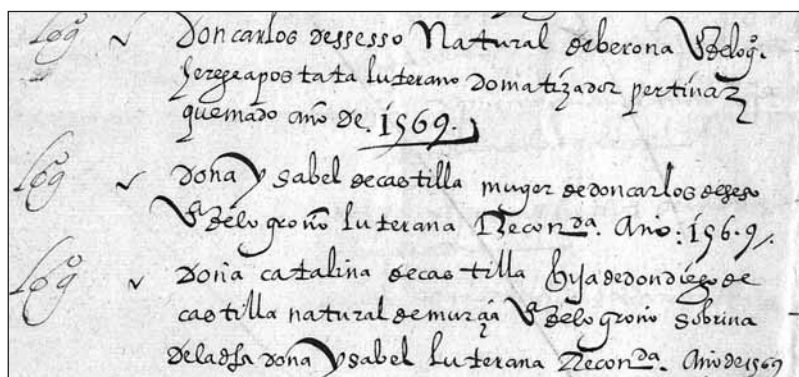 Logº Don carlos dessesso Natural de berona Vº de logº.
hereje apostata luterano domatizador pertinaz
quemado año de. 1569.
Logº Doña ysabel de castilla muger de don carlos de seso
Vª de logroño luterana Recon.da. Año: 1569/.
Logº Doña catalina de castilla hija de don diego de
castilla natural de murçia Vª de logroño sobrina
de la dha doña ysabel luterana Recon.da. Año de 1569